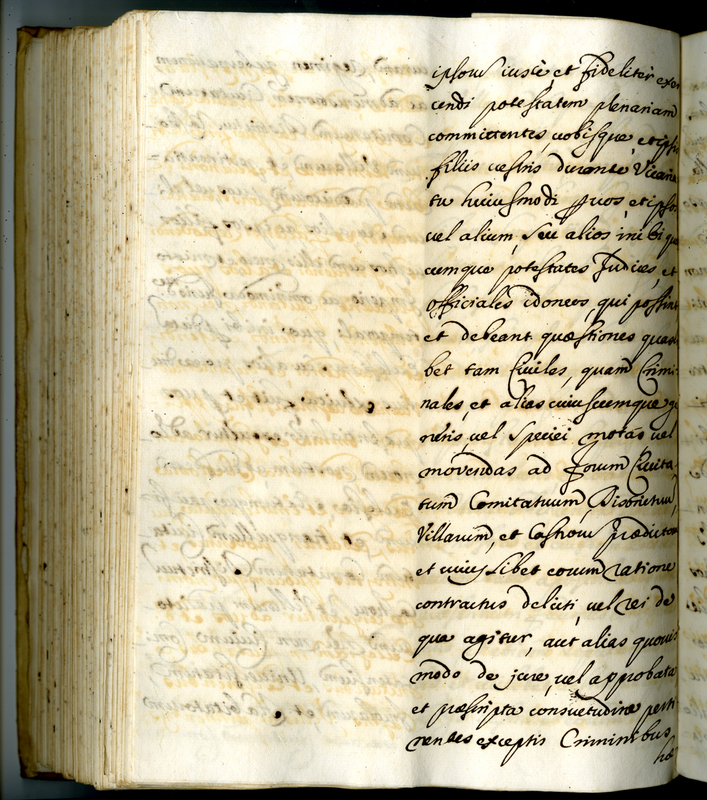 ipsorū iustè, et fideliter exer
cendi potestatem plenariam
committentes, vobisque, et ipsis
filiis vestris durante Vicaria
tu huiusmodi per vos, et ipsos
vel alium, seu alios inibi quos
cumque potestates Judices, et
officiales idoneos, qui possint
et debeant quæstiones quas
bet tam Civiles, quam Crimi
nales, et alias cuiuscumque ge
neris, vel speciei motas vel
movendas ad forum Civita
tum Comitatuum, Districtuū,
Villarum, et Castrorū prædictorū
et cuiuslibet eorum ratione
contractus delicti, vel rei de
qua agitur, aut alias quovis
modo de jure, vel approbata
et præscripta consuetudine perti
nentes exceptis Criminibus
hæ